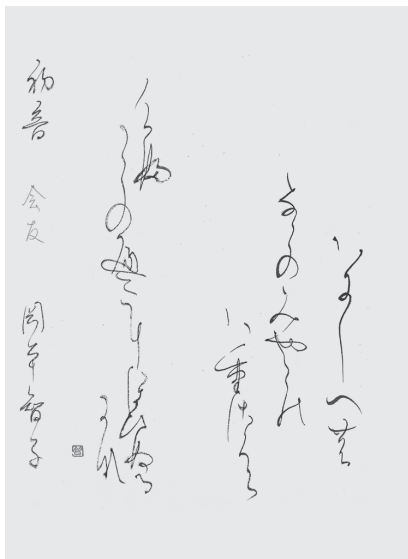 いにしへの
ならのみやこの
八重さくら
けふ
こゝのへににほひぬる
かな
初音 会友 岡本智子